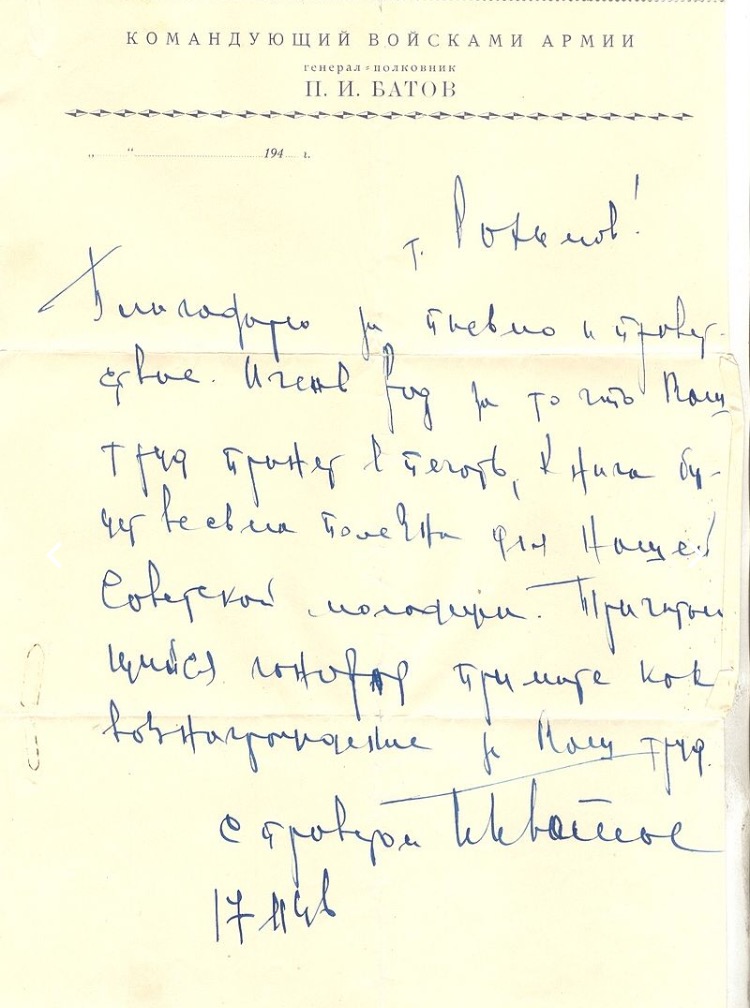 КОМАНДУЮЩИЙ ВОЙСКАМИ АРМИИ
генерал-полковник
П. И. БАТОВ
„ “ 194 г.
т. !
Благодарю за письмо и привет-
ствие. Очень рад за то что Ваш
труд принят в печать, книга бу-
дет весьма полезна для нашей
Советской молодежи. Причитаю
щийся гонорар примите как
вознаграждение за Ваш труд.
С приветом
17